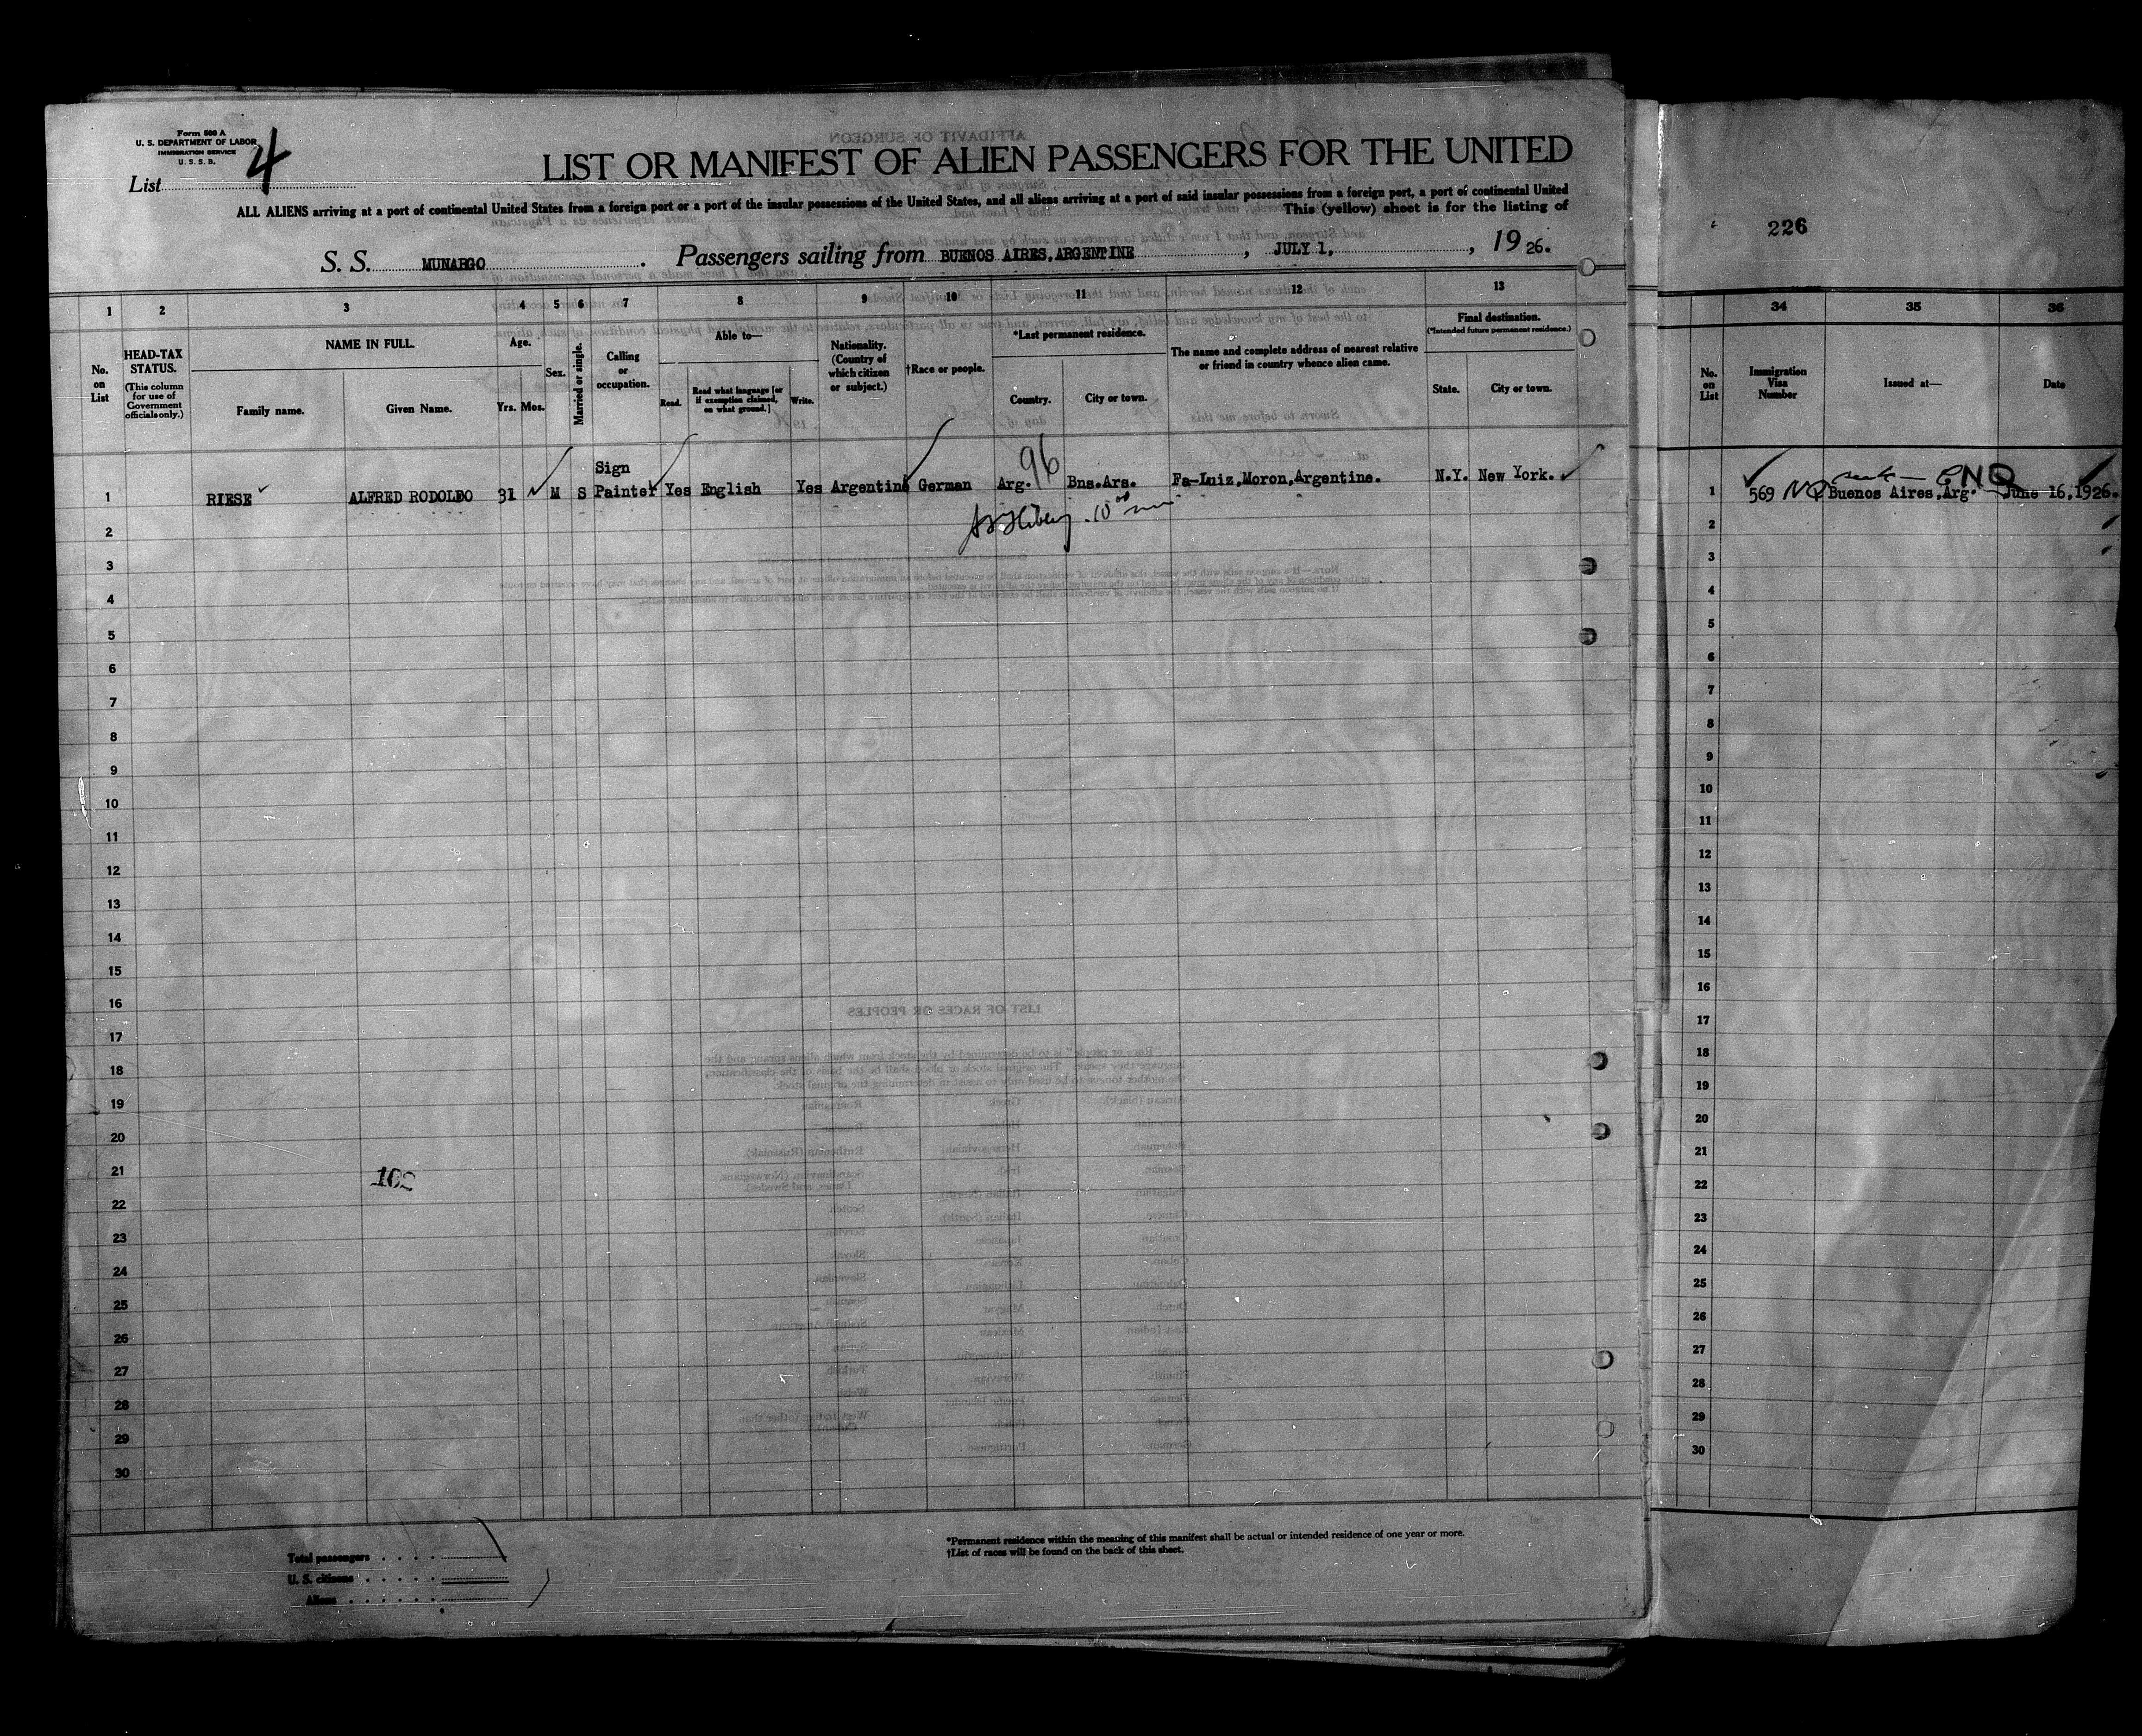 Form 500 A
U. S. DEPARTMENT OF LABOR
IMMIGRATION SERVICE
U. S. S. B.
List 4
LIST OR MANIFEST OF ALIEN PASSENGERS FOR THE UNITED
ALL ALIENS arriving at a port of continental United States from a foreign port or a port of the insular possessions of the United States, and all aliens arriving at a port of said insular possessions from a foreign port, a port of continental United
This (yellow) sheet is for the listing of
S. S. MUNARGO. Passengers sailing from BUENOS AIRES, ARGENTINE, JULY 1, , 1926.
226
1 2 3 4 5 6 7 8 9 10 11 12 13
34 35 36
No. on List
HEAD-TAX STATUS.
(This column for use of Government officials only.)
NAME IN FULL.
Family name. Given Name.
Age.
Yrs. Mos.
Sex.
Married or single.
Calling or occupation.
Able to—
Read. Read what language [or if exemption claimed, on what ground.] Write.
Nationality. (Country of which citizen or subject.)
†Race or people.
*Last permanent residence.
Country. City or town.
The name and complete address of nearest relative or friend in country whence alien came.
Final destination.
(*Intended future permanent residence.)
State. City or town.
No. on List
Immigration Visa Number
Issued at—
Date
1 RIESE ALFRED RODOLFO 31 M S Sign Painter Yes English Yes Argentine German Arg. 96 Bns.Ars. Fa-Luiz,Moron,Argentine. N.Y. New York.
1 569 NQ Buenos Aires,Arg. NQ June 16,1926.
2
3
4
5
6
7
8
9
10
11
12
13
14
15
16
17
18
19
20
21
22
23
24
25
26
27
28
29
30
2
3
4
5
6
7
8
9
10
11
12
13
14
15
16
17
18
19
20
21
22
23
24
25
26
27
28
29
30
162
Total passengers
U. S. citizens
Aliens
*Permanent residence within the meaning of this manifest shall be actual or intended residence of one year or more.
†List of races will be found on the back of this sheet.